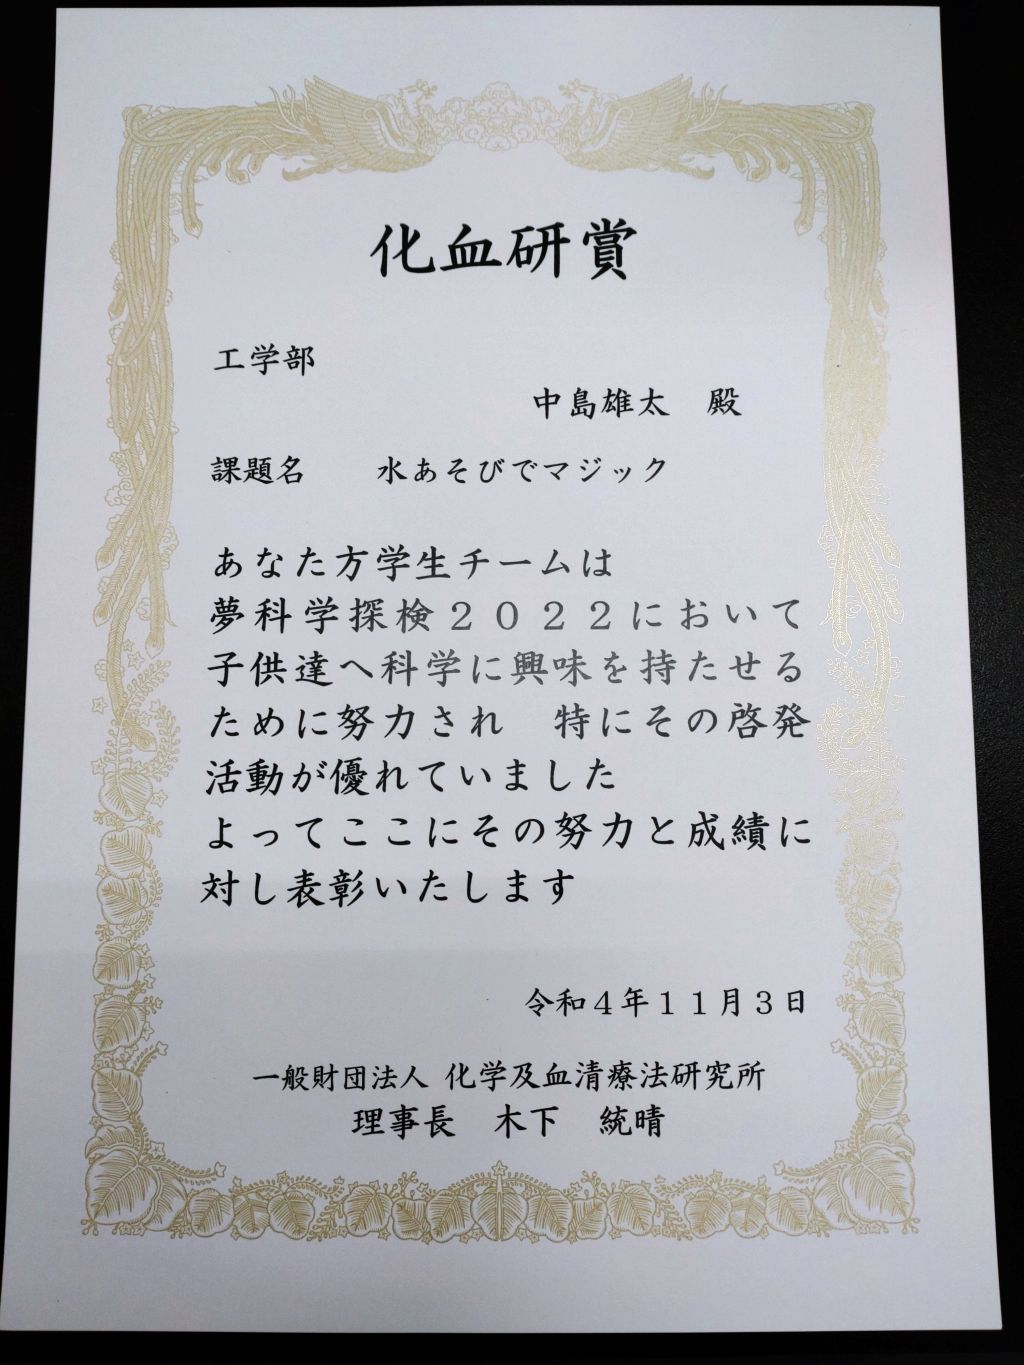 化血研賞
工学部
中島雄太　殿
課題名　　水あそびでマジック
あなた方学生チームは
夢科学探検２０２２において
子供達へ科学に興味を持たせる
ために努力され　特にその啓発
活動が優れていました
よってここにその努力と成績に
対し表彰いたします
令和４年１１月３日
一般財団法人 化学及血清療法研究所
理事長　木下　統晴